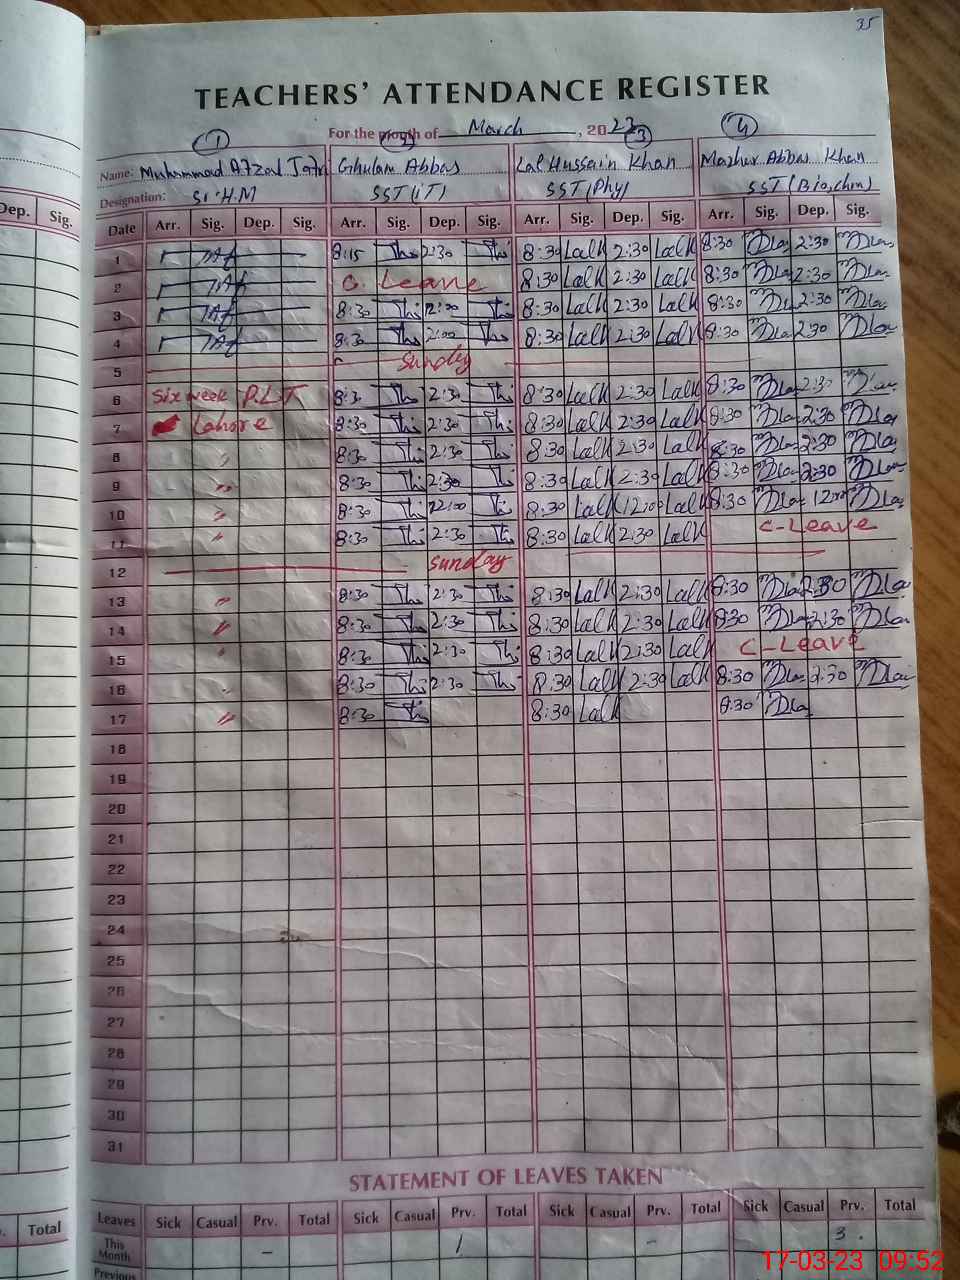 35
TEACHERS' ATTENDANCE REGISTER
For the month of March, 2023
1 2 3 4
Name: Muhammad Afzal Ghulam Abbas Lal Hussain Khan Mazhar Abbas Khan
Designation: Sr. H.M SST (IT) SST (Phy) SST (Bio, chm)
Dep. Sig. Date Arr. Sig. Dep. Sig. Arr. Sig. Dep. Sig. Arr. Sig. Dep. Sig. Arr. Sig. Dep. Sig.
1 8:15 2:30 8:30 Lalk 2:30 Lalk 8:30 2:30
2 C. Leave 8:30 Lalk 2:30 Lalk 8:30 2:30
3 8:30 12:00 8:30 Lalk 2:30 Lalk 8:30 2:30
4 8:30 2:00 8:30 Lalk 2:30 Lalk 8:30 2:30
5 Sunday
6 Six week P.L.T 8:30 2:30 8:30 Lalk 2:30 Lalk 8:30 2:30
7 Lahore 8:30 2:30 8:30 Lalk 2:30 Lalk 8:30 2:30
8 " 8:30 2:30 8:30 Lalk 2:30 Lalk 8:30 2:30
9 " 8:30 2:30 8:30 Lalk 2:30 Lalk 8:30 2:30
10 " 8:30 12:00 8:30 Lalk 12:00 Lalk 8:30 12:00
11 " 8:30 2:30 8:30 Lalk 2:30 Lalk C-Leave
12 Sunday
13 " 8:30 2:30 8:30 Lalk 2:30 Lalk 8:30 2:30
14 " 8:30 2:30 8:30 Lalk 2:30 Lalk 8:30 2:30
15 " 8:30 2:30 8:30 Lalk 2:30 Lalk C-Leave
16 " 8:30 2:30 8:30 Lalk 2:30 Lalk 8:30 2:30
17 " 8:30 8:30 Lalk 8:30
18
19
20
21
22
23
24
25
26
27
28
29
30
31
STATEMENT OF LEAVES TAKEN
Total Leaves Sick Casual Prv. Total Sick Casual Prv. Total Sick Casual Prv. Total Sick Casual Prv. Total
This Month - 1 - 3.
Previous
17-03-23 09:52